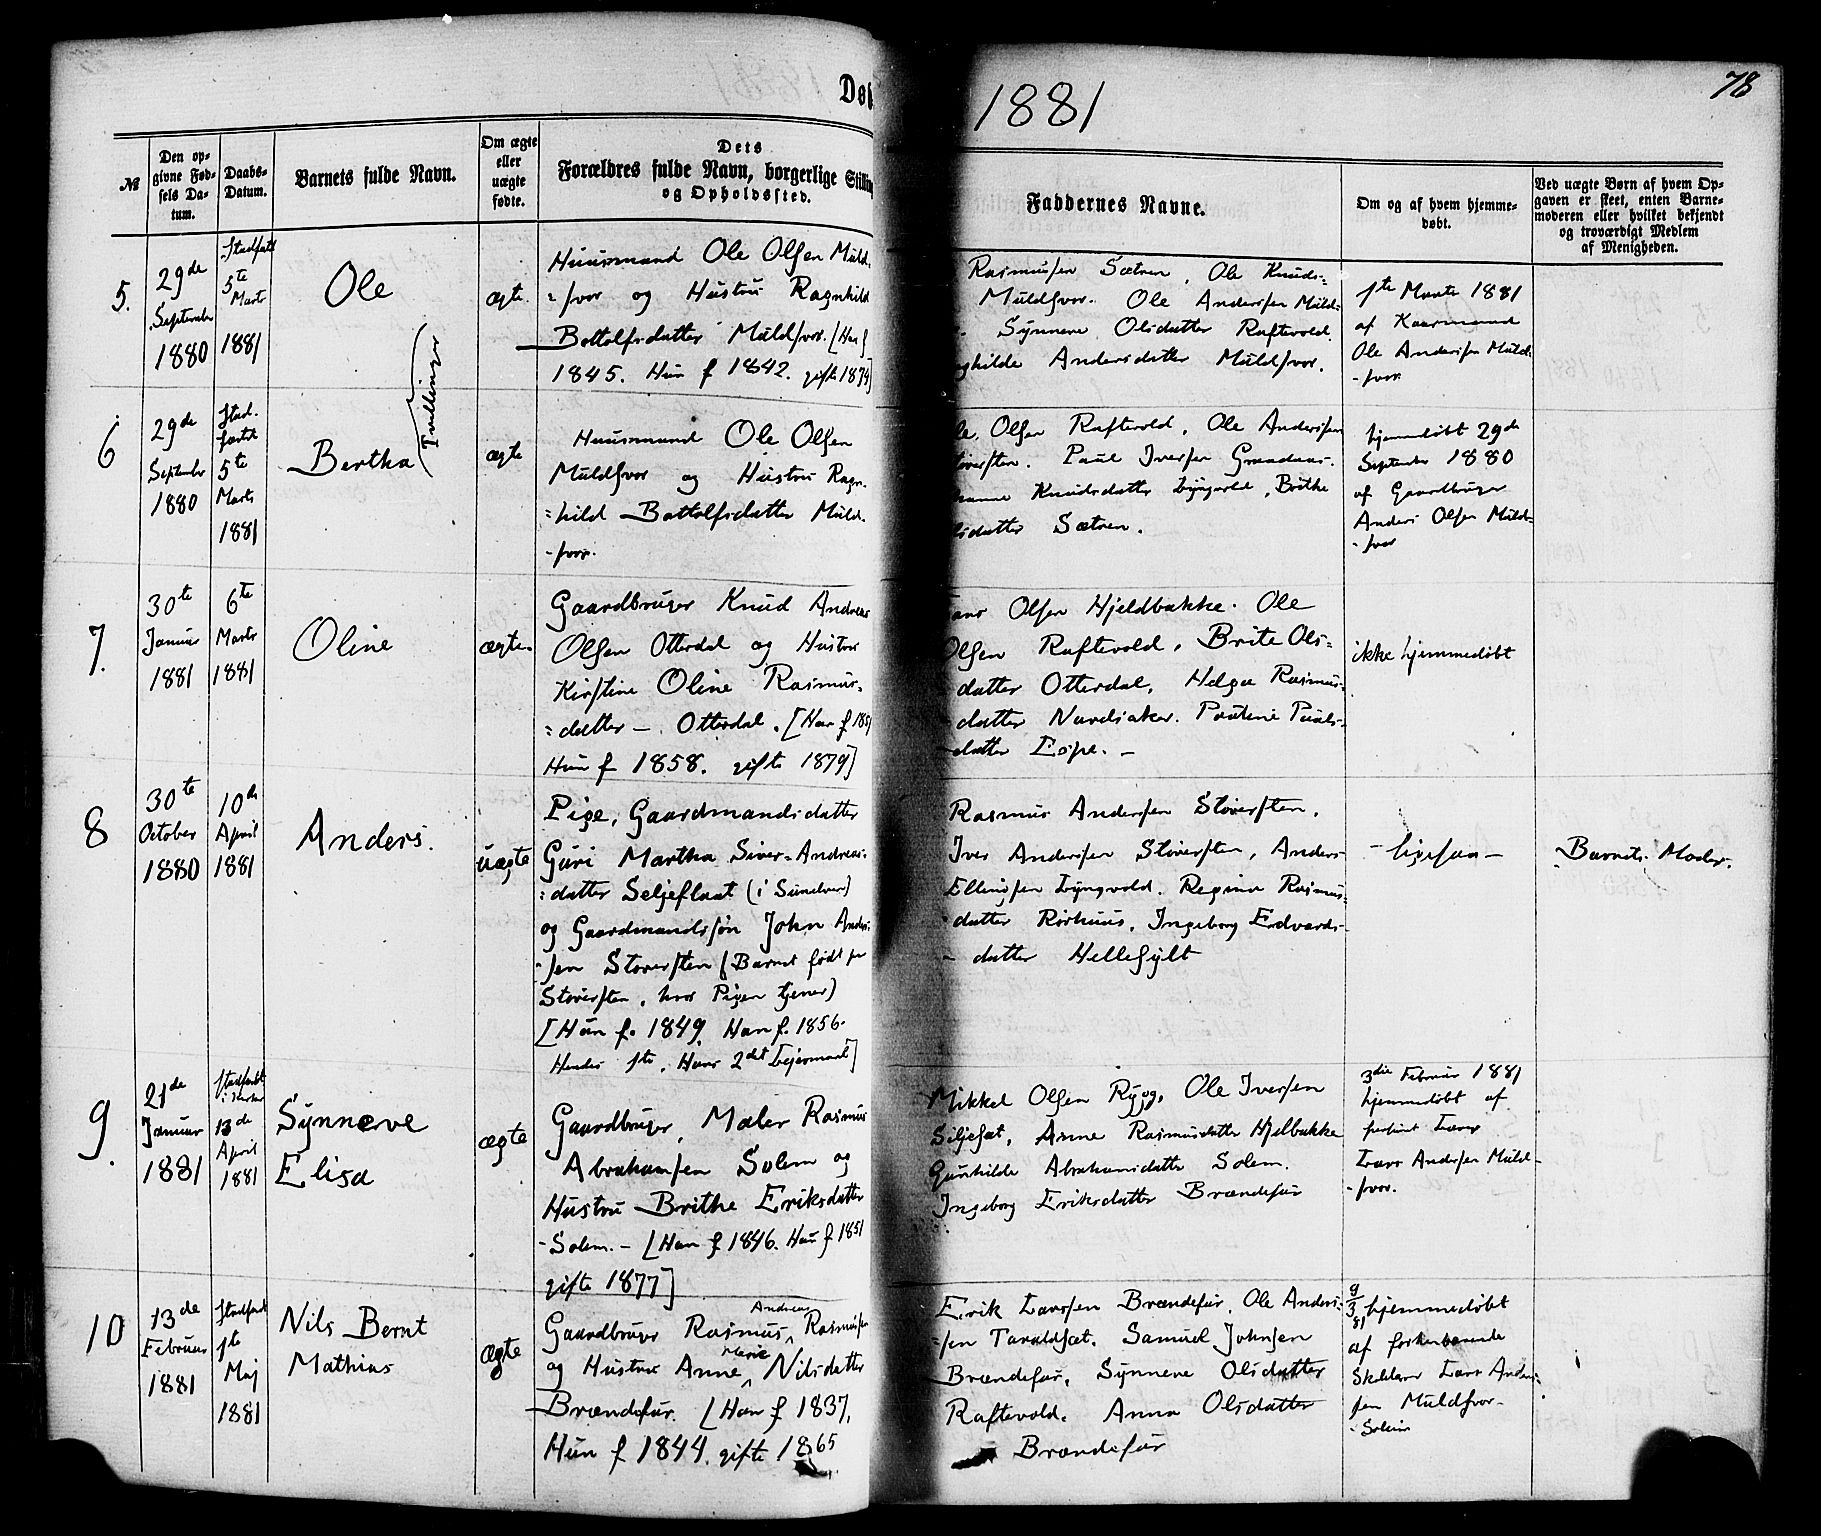 78
Døb
1881
№
Den op-
givne Fød-
sels Da-
tum.
Daabs-
Datum.
Barnets fulde Navn.
Om ægte
eller
uægte
fødte.
Dets
Forældres fulde Navn, borgerlige Stilling
og Opholdssted.
Faddernes Navne.
Om og af hvem hjemme-
døbt.
Ved uægte Børn af hvem Op-
gaven er skeet, enten Barne-
moderen eller hvilket bekjendt
og troværdigt Medlem
af Menigheden.
5.
29de
September
1880
Stadfæst
5te
Marts
1881
Ole
(Tvillinger
ægte.
Huusmand Ole Olsen Muld-
=svor og Hustru Ragnhild
Bottolfsdatter Muldsvor. [Han f
1845. Hun f 1842. gifte 1874]
Rasmussen Sætren, Ole Knuds-
Muldsvor. Ole Anderssen Muld-
Synneve Olsdatter Raftevold.
ghilde Andersdatter Muldsvor.
1ste Marts 1881
af Kaarmand
Ole Anderssen Muld-
-svor
6
29de
September
1880
Stad-
fæstet
5te
Marts
1881
Bertha
ægte
Huusmand Ole Olsen
Muldsvor og Hustru Ragn-
=hild Bottolfsdatter Muld-
-svor.
le. Olsen Raftevold, Ole Anderssen
Støversten. Paul Iversen Graadaas.
hanne Knudsdatter Lyngvold, Brithe
lsdatter Sætren.
hjemmedøbt 29de
September 1880
af Gaardbruger
Anders Olsen Muld-
-svor
7.
30te
Januar
1881
6te
Marts
1881
Oline
ægte.
Gaardbruger Knud Andreas
Olsen Otterdal og Hustru
Kirstine Oline Rasmus-
=datter – Otterdal. [Han f 185
Hun f 1858. gifte 1879]
Olsen Hjeldbakke. Ole
Olsen Raftevold, Brite Ols-
datter Otterdal, Helga Rasmus-
datter Nordsaker. Pauline Pauls-
datter Espe. –
ikke hjemmedøbt
8
30te
October
1880
10de
April
1881
Anders.
uægte
Pige, Gaardmandsdatter
Guri Martha Siver-Andreas-
=datter Seljeflaat (i Sundver)
og Gaardmandssøn John Anders-
-sen Støversten (Barnet født paa
Støversten, hvor Pigen tjener)
[Hun f. 1849. Han f. 1856.
Hendes 1ste, Hans 2det Leiermaal]
Rasmus Anderssen Støversten,
Iver Anderssen Støversten, Anders
Ellingsen Lyngvold. Regina Rasmus-
datter Rørhuus, Ingeborg Edvards-
- datter Hellesylt
– ligesaa –
Barnets Moder.
9.
21de
Januar
1881
Stadfæstet
i Kirken
13de
April
1881
Synneve
Elisa
ægte
Gaardbruger, Maler Rasmus
Abrahamsen Solem og
Hustru Brithe Eriksdatter
-Solem. – [Han f 1846. Hun f 1851
gifte 1877]
Mikkel Olsen Rygg, Ole Iversen
Siljesæt, Anne Rasmusdatter Hjelbakke
Gunhilde Abrahamsdatter Solem.
Ingeborg Eriksdatter Brændefur
3die Februar 1881
hjemmedøbt af
Lærer
Lars Andersen Muld-
-svor.
10
13de
Februar
1881
Stadfæst
1ste
Maj
1881
Nils Bernt
Mathias
ægte
Andreas
Gaardbruger Rasmus ^ Rasmussen
Marie
og Hustru Anne ^ Nilsdatter
Brændefur. [Han f 1837,
Hun f 1844. gifte 1865
Erik Larssen Brændefur, Ole Anders-
=sen Taraldsæt. Samuel Johnsen
Brændefur, Synneve Olsdatter
Raftevold. Anna Olsdatter
Brændefur
9/3 81 hjemmedøbt
af forhenværende
Skolelærer Lars Anders-
sen Muldsvor-
-Solem